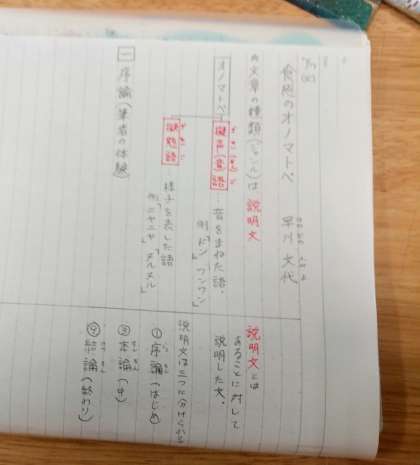 食感のオノマトペ 早川 文代
文章の種類(ジャンル)は 説明文
オノマトペ
擬声(音)語 … 音をまねた語。
例「ドン」「ワンワン」
擬態語 … 様子を表した語
例「ニヤニヤ」「ヌルヌル」
一 序論(筆者の体験)
説明文とは
あることに対して
説明した文。
説明文は三つに分けられる
① 序論(はじめ)
② 本論(中)
③ 結論(終わり)